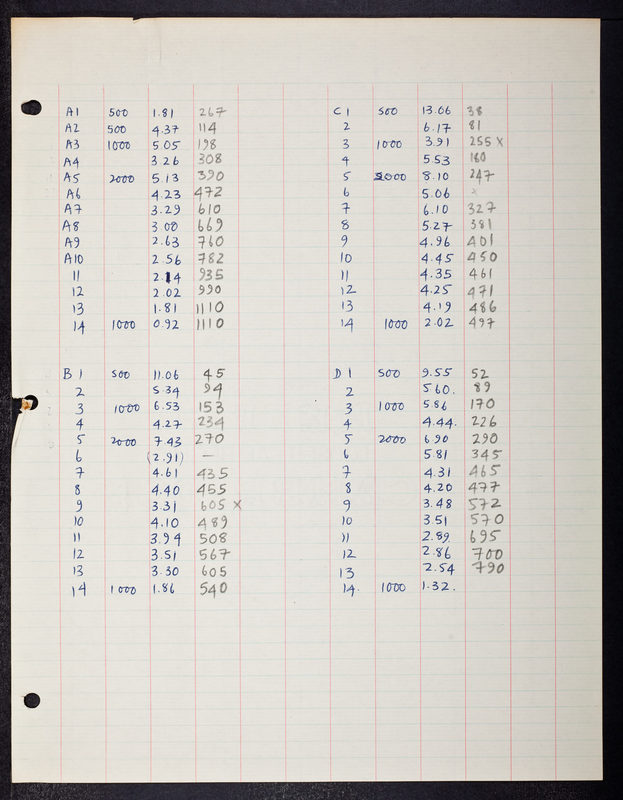 A1 500 1.81 267
A2 500 4.37 114
A3 1000 5.05 198
A4 3.26 308
A5 2000 5.13 390
A6 4.23 472
A7 3.29 610
A8 3.00 669
A9 2.63 760
A10 2.56 782
11 2.14 935
12 2.02 990
13 1.81 1110
14 1000 0.92 1110
B 1 500 11.06 45
2 5.34 94
3 1000 6.53 153
4 4.27 234
5 2000 7.43 270
6 (2.91) —
7 4.61 435
8 4.40 455
9 3.31 605 X
10 4.10 489
11 3.94 508
12 3.51 567
13 3.30 605
14 1000 1.86 540
C 1 500 13.06 38
2 6.17 81
3 1000 3.91 255 X
4 5.53 180
5 2000 8.10 247
6 5.06
7 6.10 327
8 5.27 381
9 4.96 401
10 4.45 450
11 4.35 461
12 4.25 471
13 4.19 486
14 1000 2.02 497
D 1 500 9.55 52
2 5.60. 89
3 1000 5.86 170
4 4.44. 226
5 2000 6.90 290
6 5.81 345
7 4.31 465
8 4.20 477
9 3.48 572
10 3.51 570
11 2.89. 695
12 2.86 700
13 2.54 790
14. 1000 1.32.